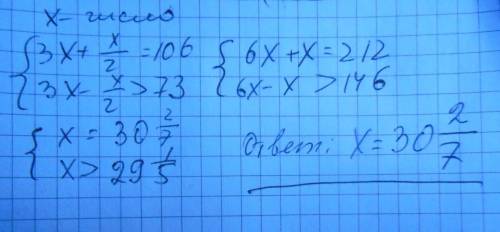 x - число
{ 3x + x/2 = 106
{ 3x - x/2 > 73
{ 6x + x = 212
{ 6x - x > 146
{ x = 30 2/7
{ x > 29 1/5
Ответ: x = 30 2/7